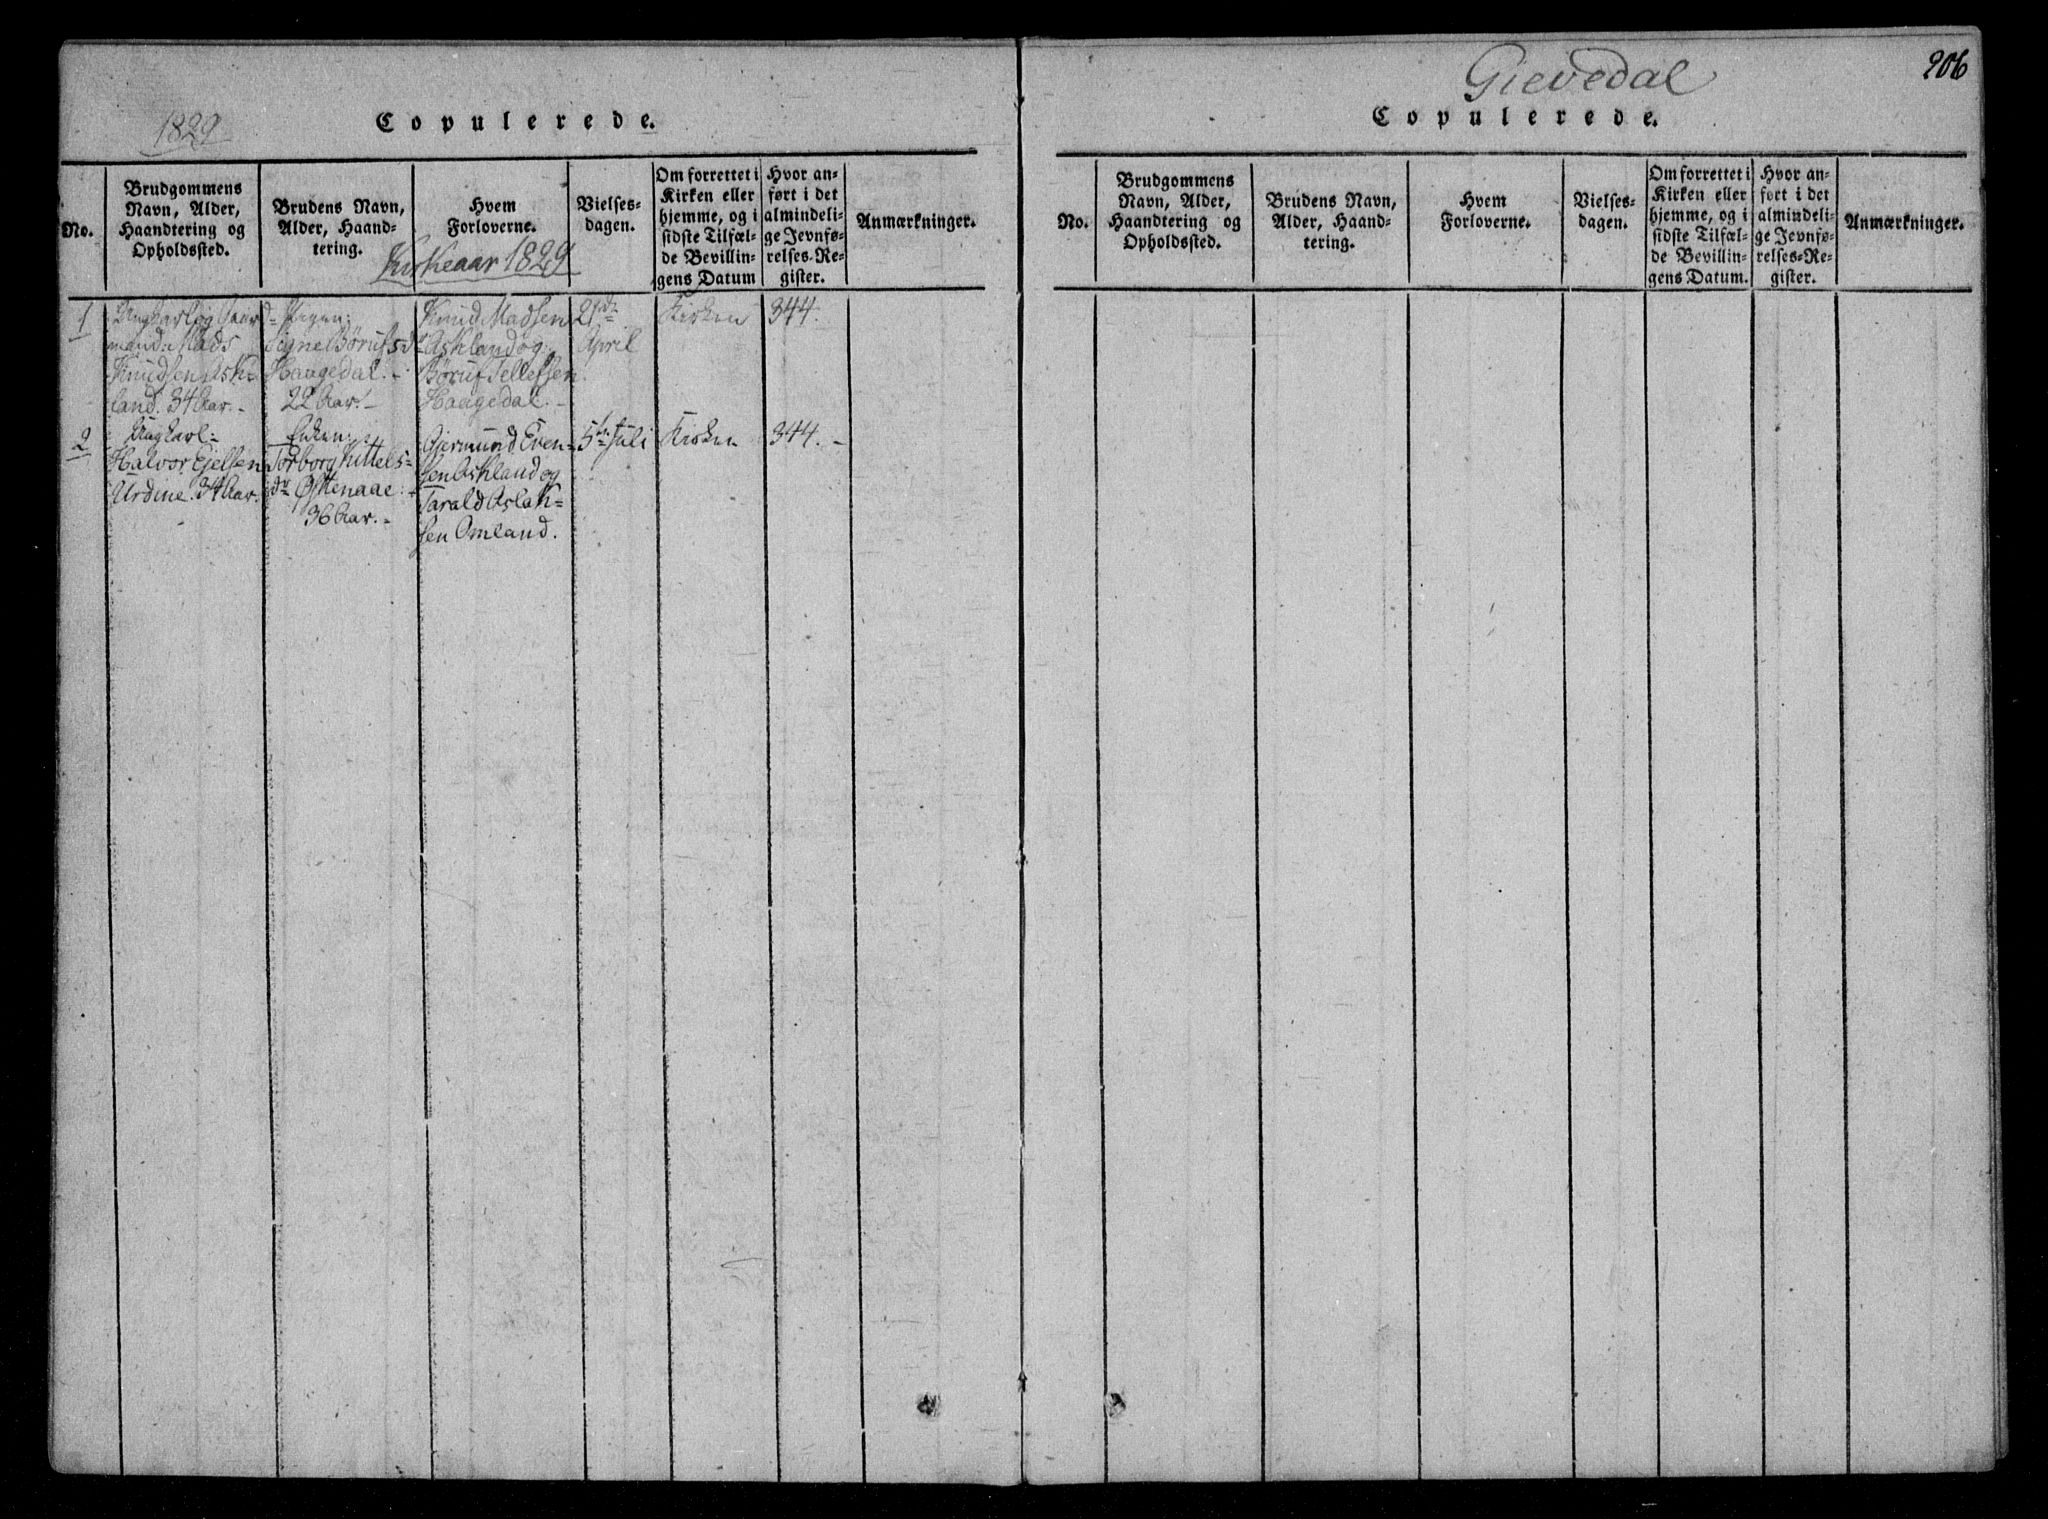 1829
Copulerede.
No.
Brudgommens
Navn, Alder,
Haandtering og
Opholdssted.
Brudens Navn,
Alder, Haand-
tering.
Hvem
Forloverne.
Vielses-
dagen.
Om forrettet i
Kirken eller
hjemme, og i
sidste Tilfæl-
de Bevillin-
gens Datum
Hvor an-
ført i det
almindeli-
ge Jevnfø-
relses-Re-
gister.
Anmærkninger.
Kirkeaar 1829
1
Ungkarl og Gaard-
mand: Mads
Knudsen Ask-
land. 34 Aar.-
Pigen:
Signe Børufsd
Haugedal.-
22 Aar.-
Knud Madsen
Askland og
Børuf Tellefsen
Haugedal.-
21de
April
Kirken
344.
2
Ungkarl-
Halvor Ejelsen
Urdine. 34 Aar.
Enken:
Torborg Kittels-
dr Østenaae.
36 Aar.-
Gjermund Even-
sen Askland og
Tarald Aslak-
sen Omland.
5te Juli
Kirken
344.-
Gievedal
206
Copulerede.
No.
Brudgommens
Navn, Alder,
Haandtering og
Opholdssted.
Brudens Navn,
Alder, Haand-
tering.
Hvem
Forloverne.
Vielses-
dagen.
Om forrettet i
Kirken eller
hjemme, og i
sidste Tilfæl-
de Bevillin-
gens Datum.
Hvor an-
ført i det
almindeli-
ge Jevnfø-
relses-Re-
gister.
Anmærkninger.